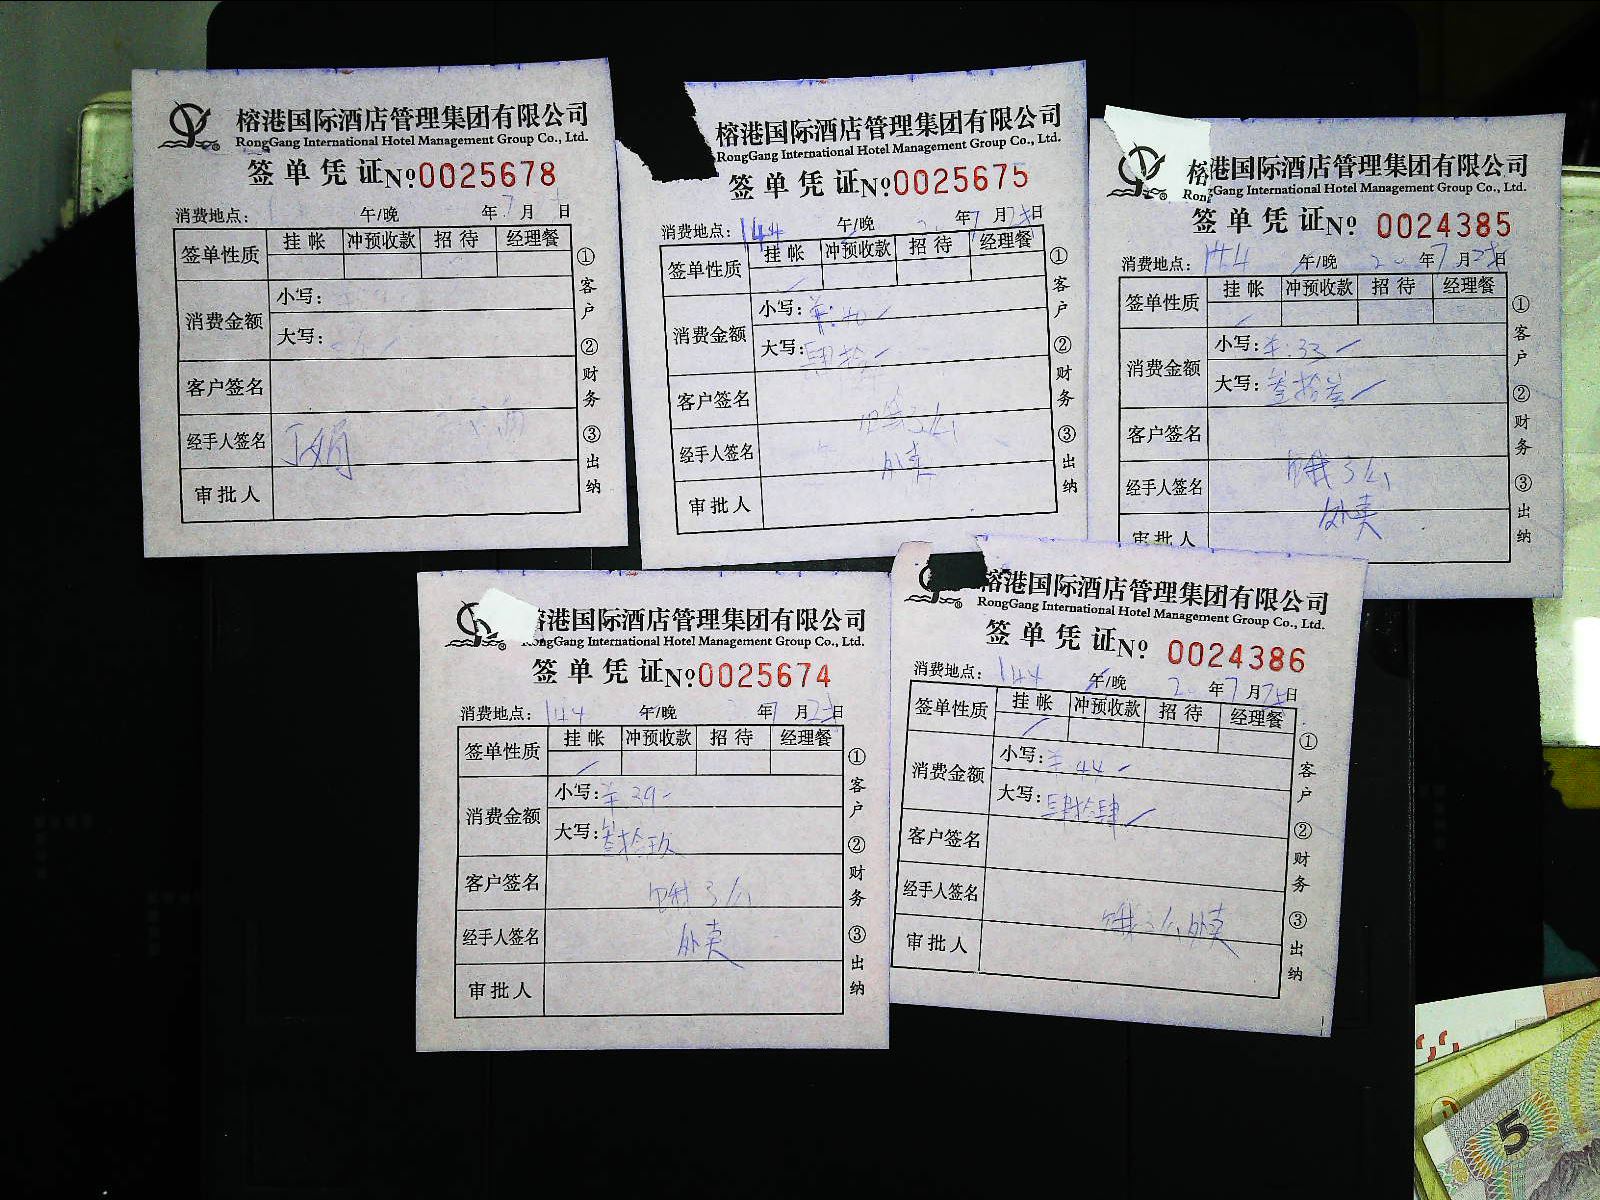 榕港国际酒店管理集团有限公司
RongGang International Hotel Management Group Co., Ltd.
签单凭证 No 0025678
消费地点： 午/晚 年7月 日
签单性质 挂帐 冲预收款 招待 经理餐
消费金额 小写：
大写：
客户签名
经手人签名 丁娟
审批人
①客户 ②财务 ③出纳
榕港国际酒店管理集团有限公司
RongGang International Hotel Management Group Co., Ltd.
签单凭证 No 0025675
消费地点：144 午/晚 年7月25日
签单性质 挂帐 冲预收款 招待 经理餐
消费金额 小写：¥:40
大写：肆拾
客户签名
饿了么
经手人签名 外卖
审批人
①客户 ②财务 ③出纳
港国际酒店管理集团有限公司
Gang International Hotel Management Group Co., Ltd.
签单凭证 No 0024385
消费地点：144 午/晚 20 年7月25日
签单性质 挂帐 冲预收款 招待 经理餐
消费金额 小写：¥:33
大写：叁拾叁
客户签名
经手人签名 饿了么
外卖
审批人
①客户 ②财务 ③出纳
港国际酒店管理集团有限公司
RongGang International Hotel Management Group Co., Ltd.
签单凭证 No 0025674
消费地点：144 午/晚 年7月25日
签单性质 挂帐 冲预收款 招待 经理餐
消费金额 小写：¥39
大写：叁拾玖
客户签名 饿了么
经手人签名 外卖
审批人
①客户 ②财务 ③出纳
榕港国际酒店管理集团有限公司
RongGang International Hotel Management Group Co., Ltd.
签单凭证 No 0024386
消费地点：144 午/晚 20 年7月25日
签单性质 挂帐 冲预收款 招待 经理餐
消费金额 小写：¥44
大写：肆拾肆
客户签名
经手人签名 饿了么外卖
审批人
①客户 ②财务 ③出纳
5